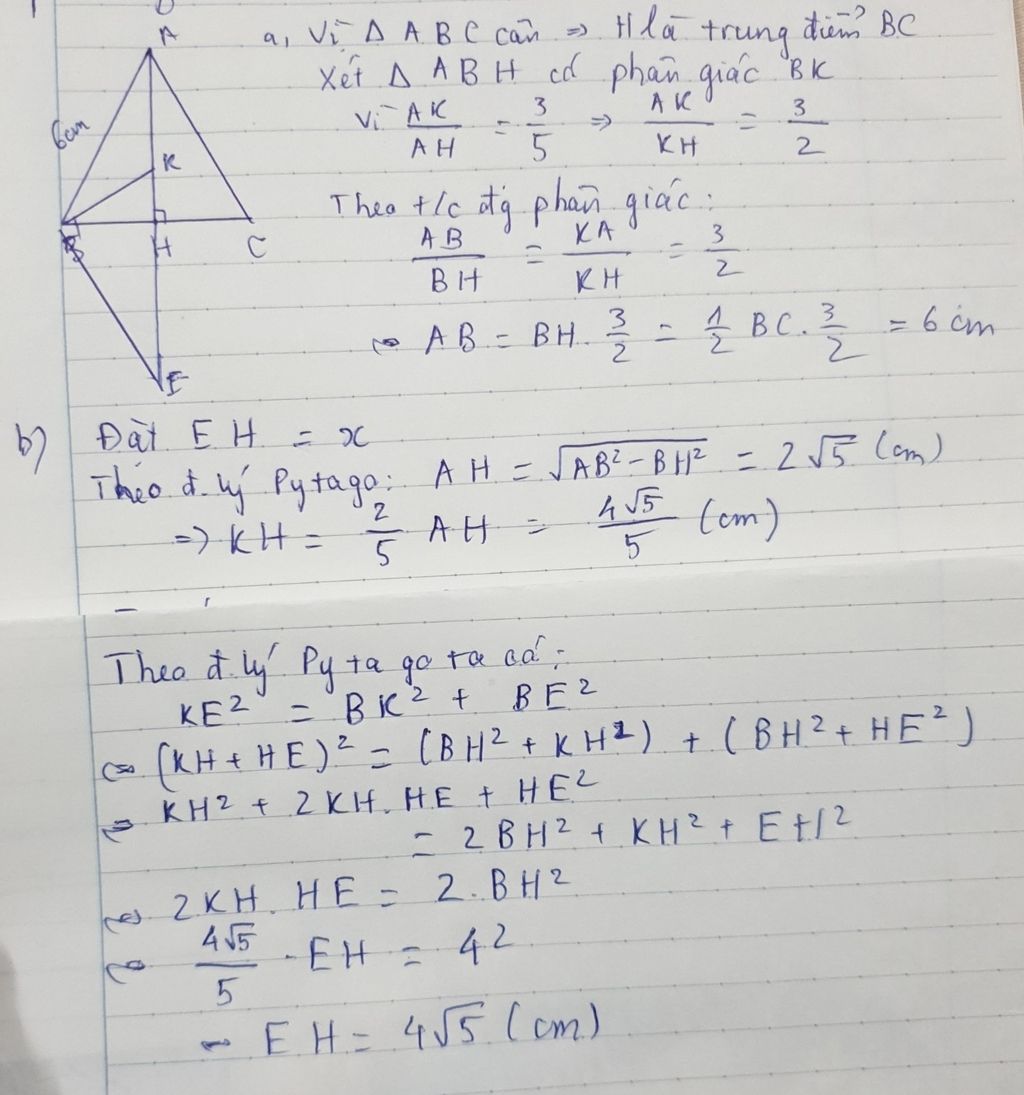 A
6cm
K
B
H
C
E
a, Vì Δ ABC cân => H là trung điểm BC
Xét Δ ABH có phân giác BK
Vì AK/AH = 3/5 => AK/KH = 3/2
Theo t/c đ/g phân giác:
AB/BH = KA/KH = 3/2
<=> AB = BH. 3/2 = 1/2 BC. 3/2 = 6 cm
b) Đặt EH = x
Theo đ. lý Pytago: AH = √(AB² - BH²) = 2√5 (cm)
=> KH = 2/5 AH = 4√5/5 (cm)
Theo đ. lý Pytago ta có:
KE² = BK² + BE²
<=> (KH + HE)² = (BH² + KH²) + (BH² + HE²)
<=> KH² + 2KH. HE + HE²
= 2BH² + KH² + EH²
<=> 2KH. HE = 2.BH²
<=> 4√5/5 . EH = 4²
<=> EH = 4√5 (cm)